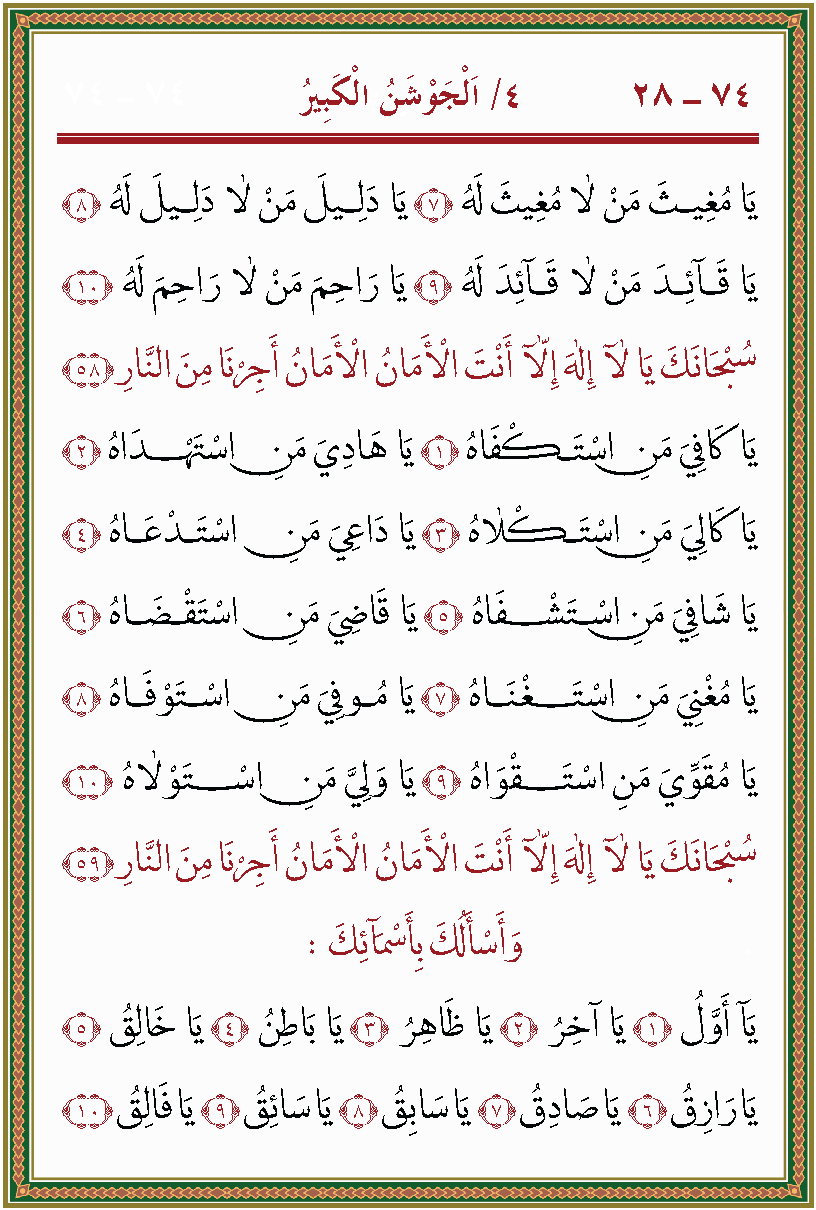 ٧٤ ـ ٢٨ ٤/ اَلْجَوْشَنُ الْكَبِيرُ ٧٤ ـ ٧٤
يَا مُغِيـثَ مَنْ لَا مُغِيثَ لَهُ ﴿٧﴾ يَا دَلِـيلَ مَنْ لَا دَلِـيلَ لَهُ ﴿٨﴾
يَا قَـآئِـدَ مَنْ لَا قَـآئِدَ لَهُ ﴿٩﴾ يَا رَاحِمَ مَنْ لَا رَاحِمَ لَهُ ﴿١٠﴾
سُبْحَانَكَ يَا لَآ إِلٰهَ إِلَّآ أَنْتَ الْأَمَانُ الْأَمَانُ أَجِرْنَا مِنَ النَّارِ ﴿٥٨﴾
يَا كَافِيَ مَنِ اسْتَـكْفَاهُ ﴿١﴾ يَا هَادِيَ مَنِ اسْتَهْـدَاهُ ﴿٢﴾
يَا كَالِيَ مَنِ اسْتَـكْلَاهُ ﴿٣﴾ يَا دَاعِيَ مَنِ اسْتَـدْعَـاهُ ﴿٤﴾
يَا شَافِيَ مَنِ اسْـتَـشْـفَاهُ ﴿٥﴾ يَا قَاضِيَ مَنِ اسْتَقْـضَـاهُ ﴿٦﴾
يَا مُغْنِيَ مَنِ اسْتَـغْنَـاهُ ﴿٧﴾ يَا مُـوفِيَ مَنِ اسْـتَـوْفَـاهُ ﴿٨﴾
يَا مُقَوِّيَ مَنِ اسْتَـقْوَاهُ ﴿٩﴾ يَا وَلِيَّ مَنِ اسْـتَوْلَاهُ ﴿١٠﴾
سُبْحَانَكَ يَا لَآ إِلٰهَ إِلَّآ أَنْتَ الْأَمَانُ الْأَمَانُ أَجِرْنَا مِنَ النَّارِ ﴿٥٩﴾
وَأَسْأَلُكَ بِأَسْمَآئِكَ :
يَآ أَوَّلُ ﴿١﴾ يَا آخِرُ ﴿٢﴾ يَا ظَاهِرُ ﴿٣﴾ يَا بَاطِنُ ﴿٤﴾ يَا خَالِقُ ﴿٥﴾
يَا رَازِقُ ﴿٦﴾ يَا صَادِقُ ﴿٧﴾ يَا سَابِقُ ﴿٨﴾ يَا سَائِقُ ﴿٩﴾ يَا فَالِقُ ﴿١٠﴾